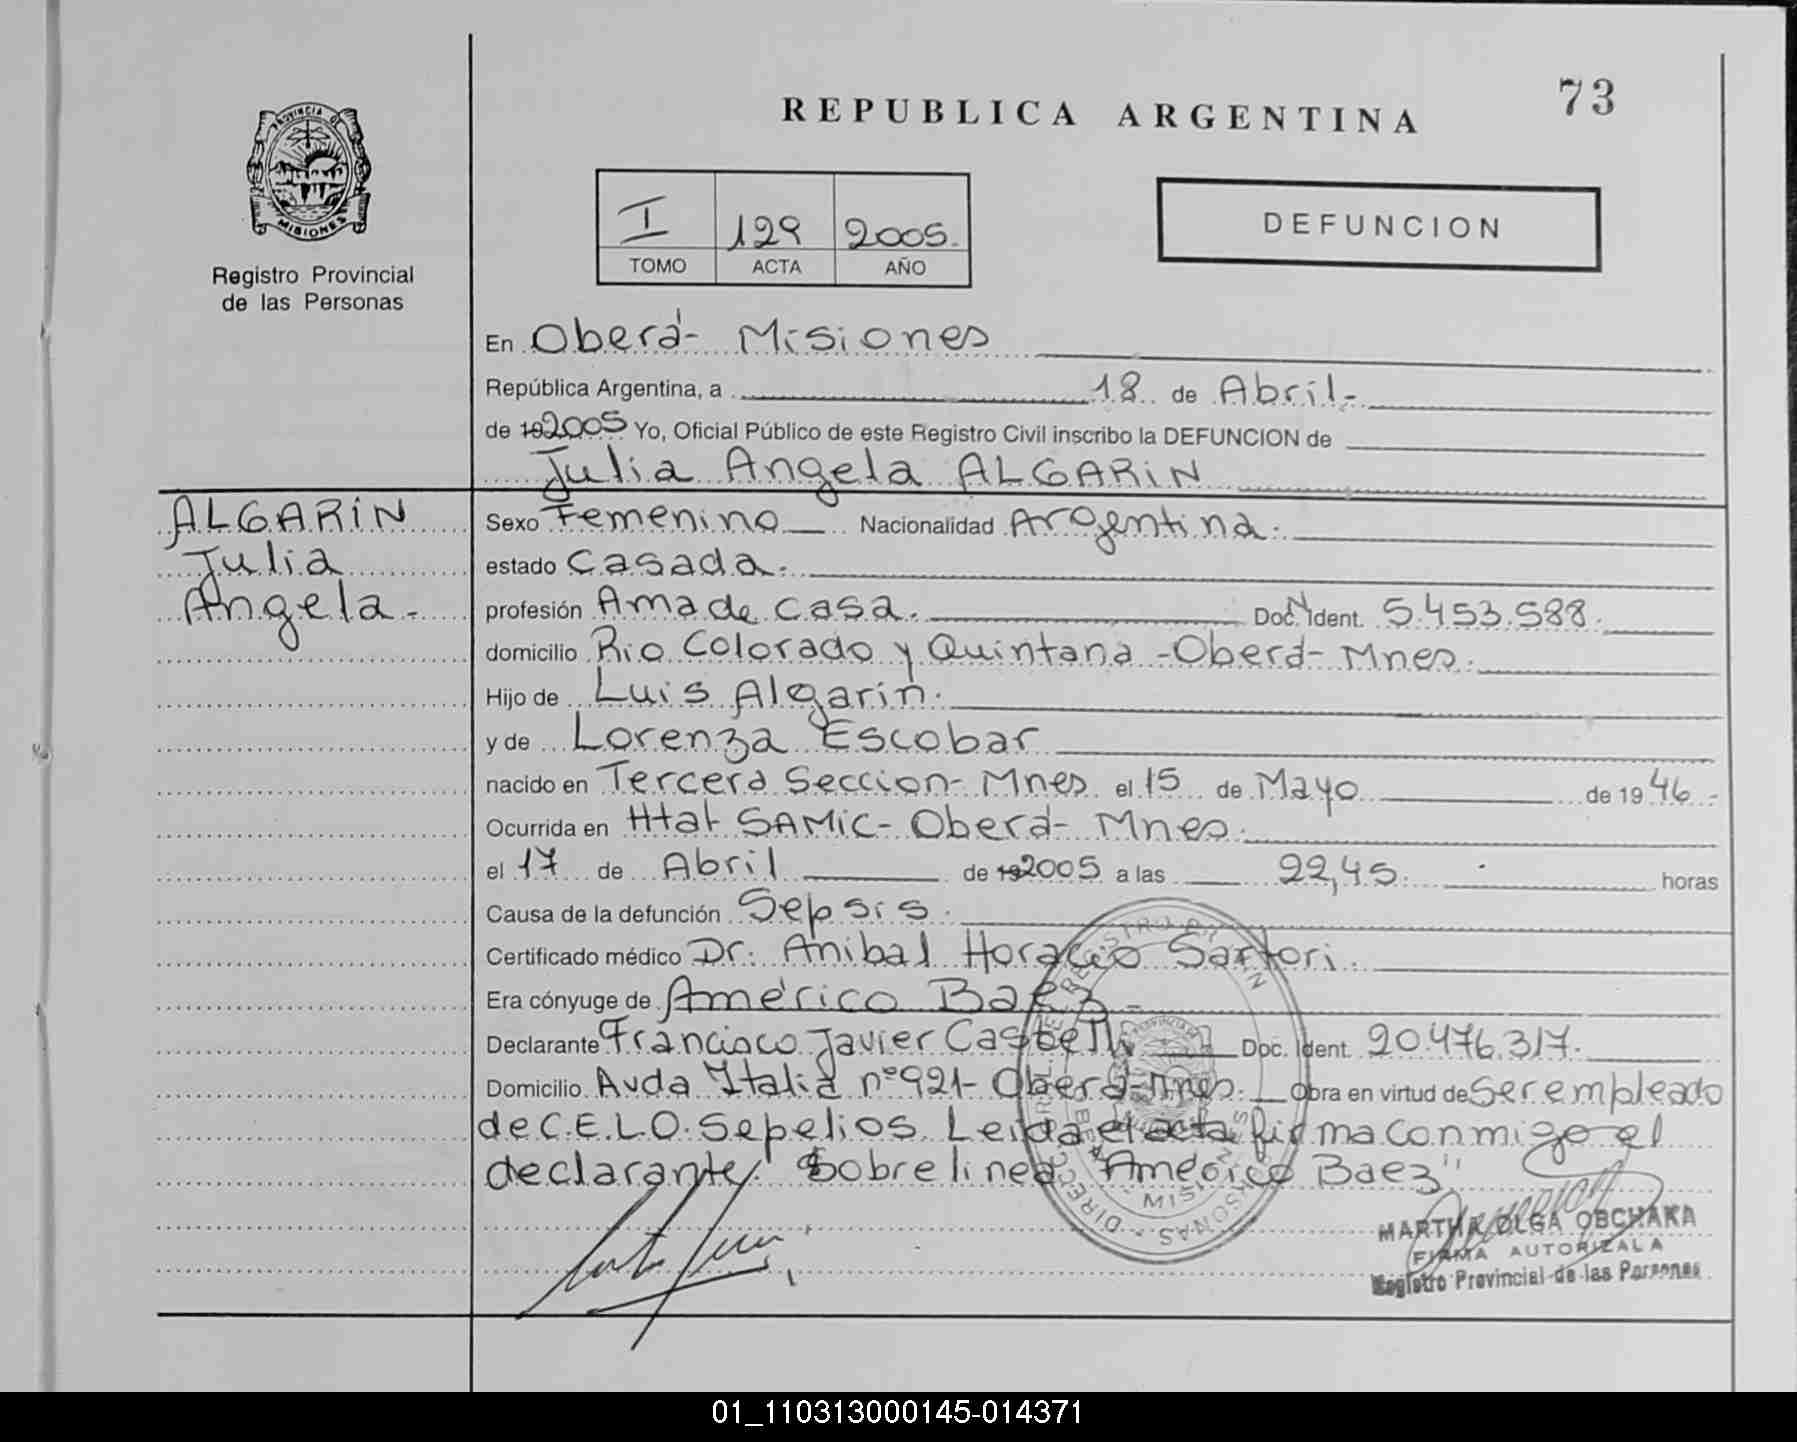 73
REPUBLICA ARGENTINA
PROVINCIA DE
MISIONES
Registro Provincial
de las Personas
I 129 2005.
TOMO ACTA AÑO
DEFUNCION
En Oberá- Misiones
República Argentina, a 18 de Abril-
de 192005 Yo, Oficial Público de este Registro Civil inscribo la DEFUNCION de
Julia Angela ALGARIN
ALGARIN
Julia
Angela-
Sexo Femenino Nacionalidad Argentina.
estado Casada.
profesión Ama de casa. Doc. N Ident. 5.453.588.
domicilio Rio Colorado y Quintana -Oberá- Mnes.
Hijo de Luis Algarin.
y de Lorenza Escobar
nacido en Tercera Seccion- Mnes. el 15 de Mayo de 1946.-
Ocurrida en Htal SAMIC- Oberá- Mnes.
el 17 de Abril de 192005 a las 22,45. horas
Causa de la defunción Sepsis.
Certificado médico Dr. Anibal Horacio Sartori.
Era cónyuge de Américo Baez-
Declarante Francisco Javier Castelli Doc. Ident. 20.476.317.
Domicilio Avda Italia nº921- Oberá-Mnes. Obra en virtud de Ser empleado
de C.E.L.O. Sepelios. Leida el acta firma conmigo el
declarante. Sobre linea "Américo Baez"
MARTHA OLGA OBCHAKA
FIRMA AUTORIZADA
Registro Provincial de las Personas
01_110313000145-014371